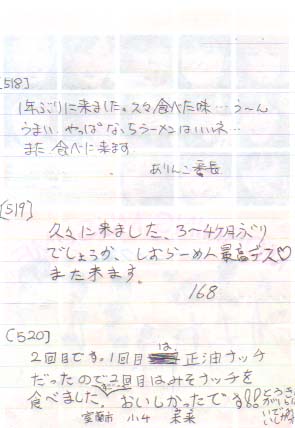 [518]
1年ぶりに来ました。久々食べた味…う〜ん
うまい。やっぱなっちラーメンはいいネ…
また食べに来ます
ありんこ番長
[519]
久々に来ました、3〜4ヶ月ぶり
でしょうか、しおらーめん最高デス♡
また来ます。
168
(520)
2回目です。1回目は、正油ナッチ
だったので2回目はみそナッチを
食べました。おいしかったです!!
室蘭市 小4 未来